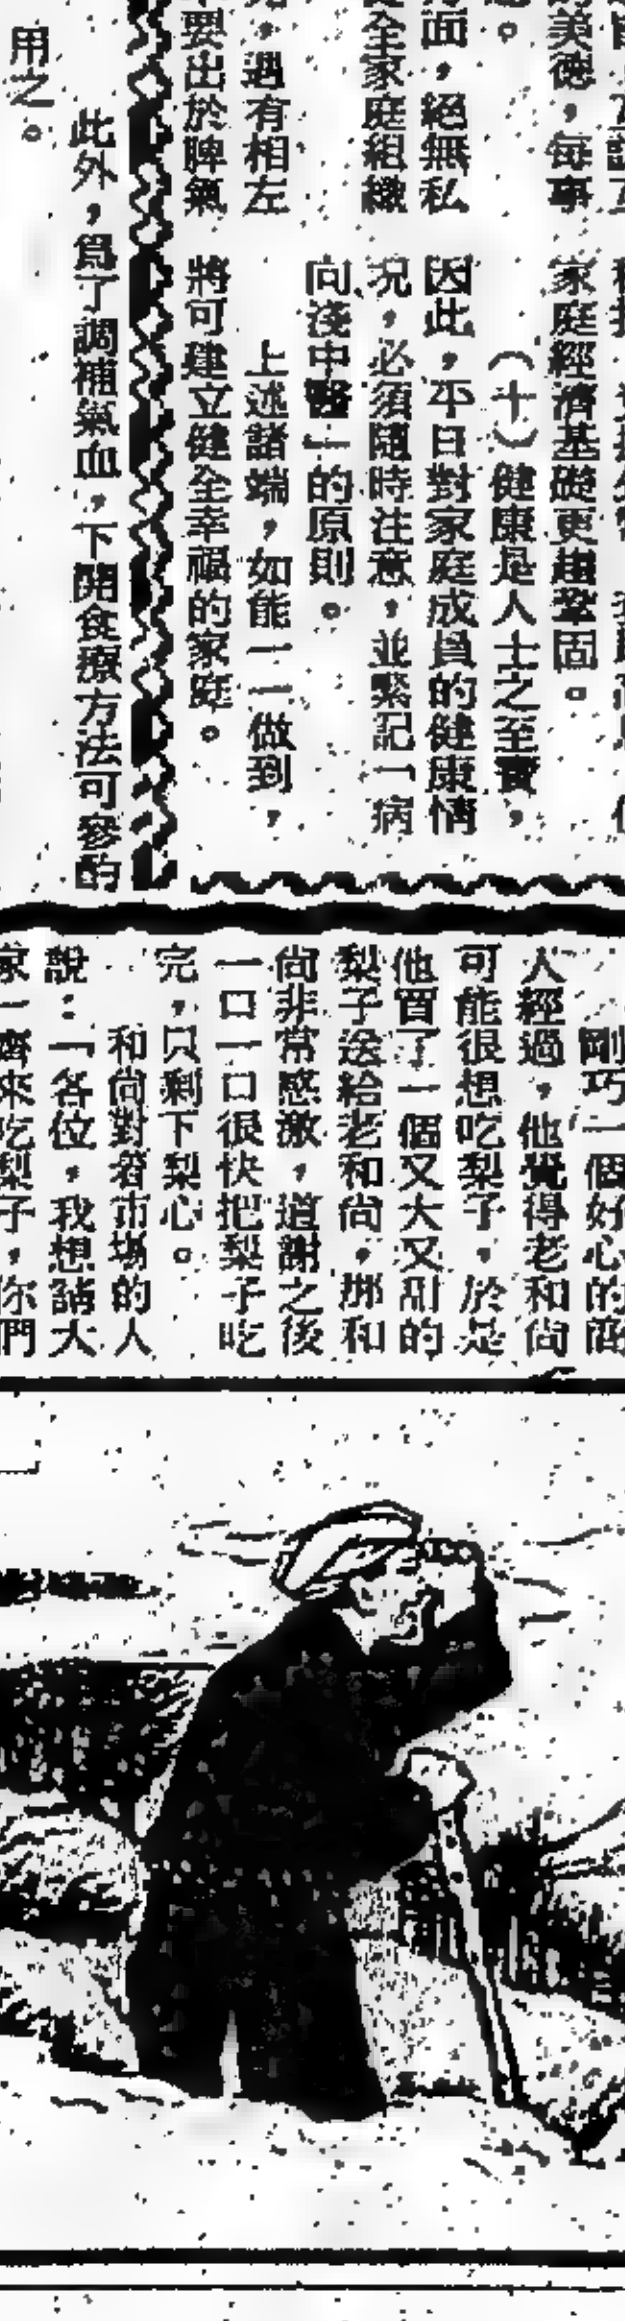 美德，每事
面，絕無私
全家庭組織
，遇有相左
要出於脾氣
家庭經濟基礎更趨鞏固。
（十）健康是人士之至寶，
因此，平日對家庭成員的健康情
況，必須隨時注意，並緊記一病
向淺中醫」的原則。
上述諸端，如能一一做到，
將可建立健全幸福的家庭。
此外，爲了調補氣血，下開食療方法可參酌
用之。
剛巧一個好心的商
人經過，他覺得老和尙
可能很想吃梨子，於是
他買了一個又大又甜的
梨子送給老和尙，那和
尙非常感激，道謝之後
一口一口很快把梨子吃
完，只剩下梨心。
和尙對着市場的人
說：「各位，我想請大
家一齊來吃梨子，你們